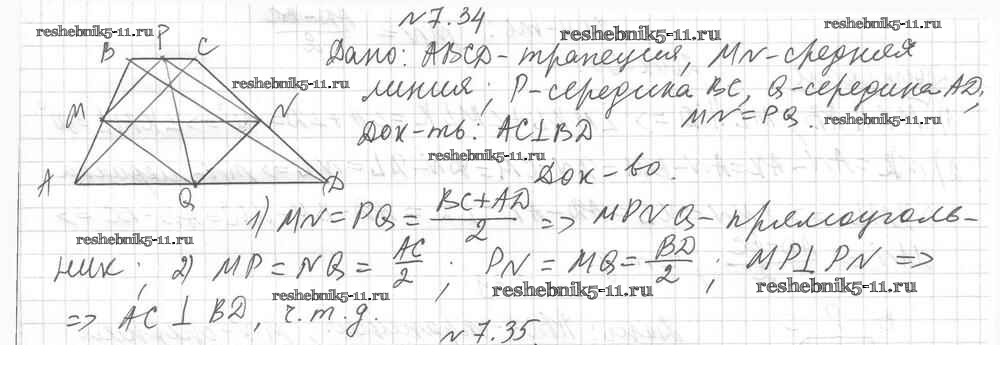 №7.34
reshebnik5-11.ru
reshebnik5-11.ru
reshebnik5-11.ru
B P C
Дано: ABCD-трапеция, MN-средняя
reshebnik5-11.ru
линия; P-середина BC, Q-середина AD,
M N
Док-ть: AC⊥BD
MN=PQ.
reshebnik5-11.ru
reshebnik5-11.ru
A Q D
Док-во.
1) MN=PQ= BC+AD/2 => MPNQ-прямоуголь-
reshebnik5-11.ru
ник; 2) MP=NQ= AC/2; PN=MQ= BD/2; MP⊥PN =>
reshebnik5-11.ru
reshebnik5-11.ru
reshebnik5-11.ru
=> AC⊥BD, ч.т.д.
№7.35